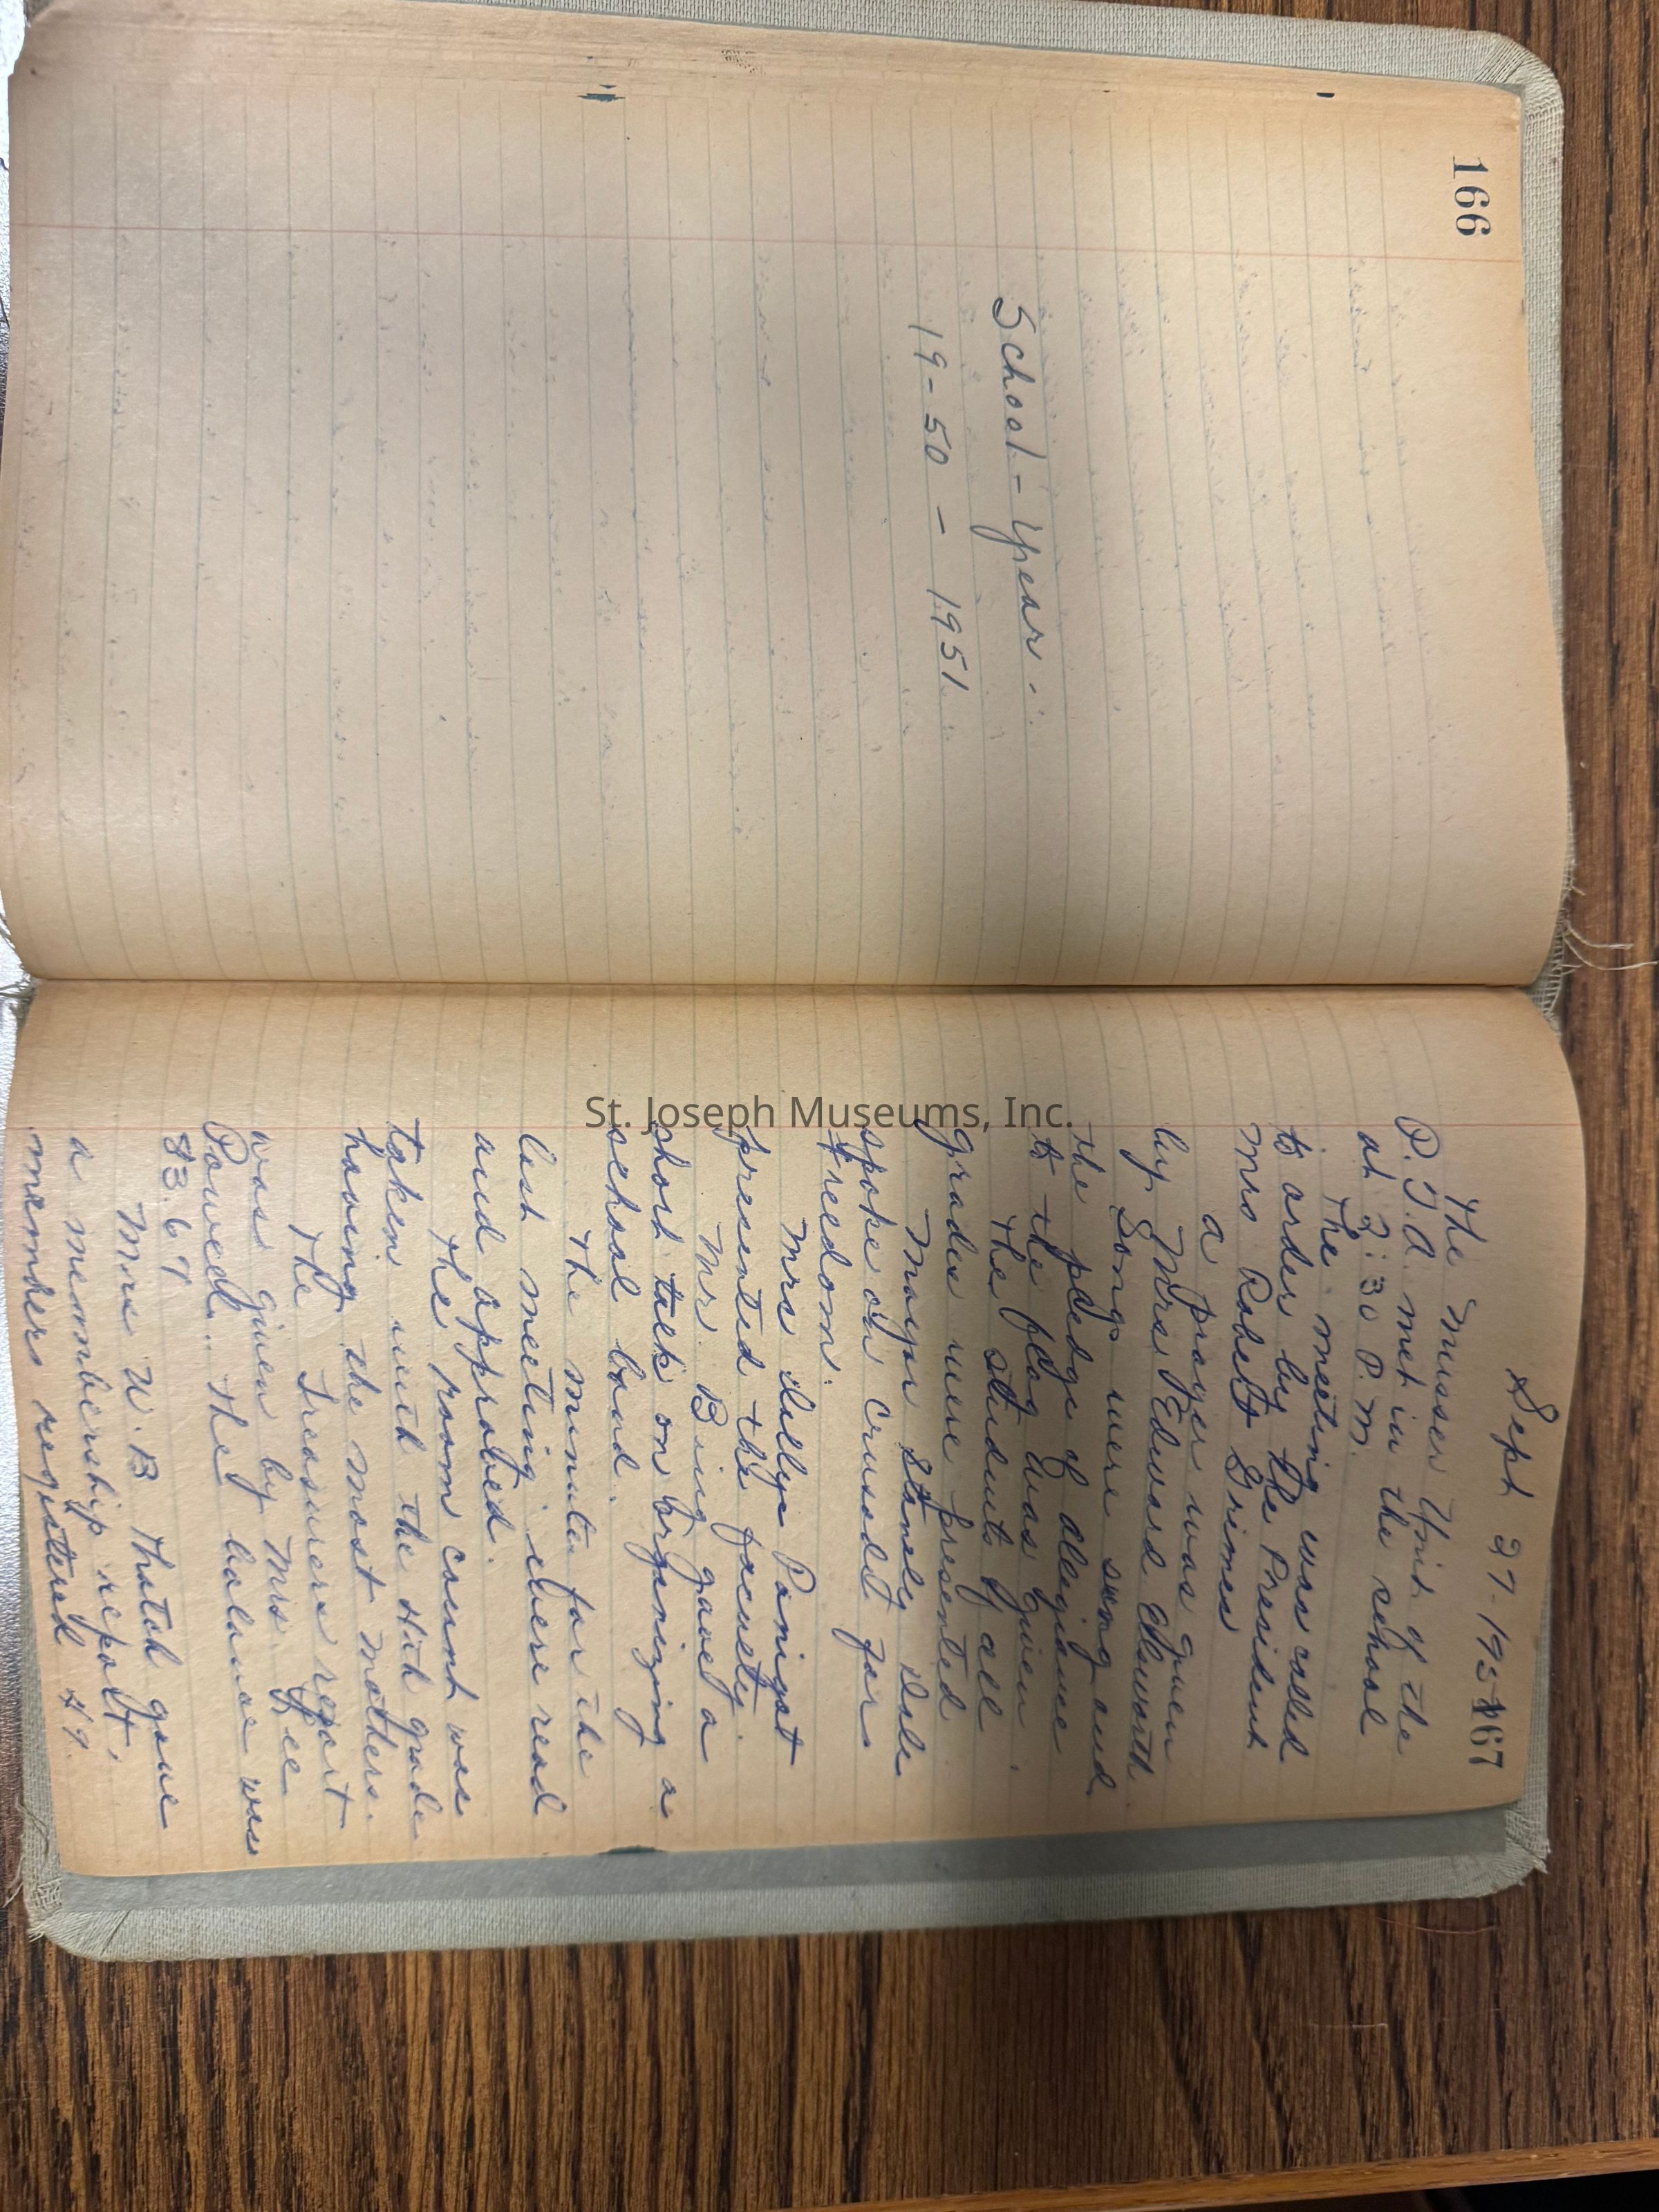 166
School-Year.
19-50 - 1951
167
Sept 27-195
The Musser Unit of the
P.T.A. met in the school
at 7:30 P.M.
The meeting was called
to order by the President
Mrs Robert Grimes
a prayer was given
by Mrs Edward Elsworth
Songs were sung and
the pledge of allegiance
to the flag was given.
The students of all
grades were presented
Mayor Stanely Dale
spoke on Crusade for
Freedom.
Mrs Sallye Panigot
presented the faculty.
Mr. Bing gave a
short talk on organizing a
school band.
The minutes for the
last meeting were read
and approved.
The room count was
taken with the 4th grade
having the most mothers.
The Treasurers report
was given by Mrs. Lee
Powell. The balance was
83.67
Mrs W.B Thatch gave
a membership report,
members registered 49.
St. Joseph Museums, Inc.